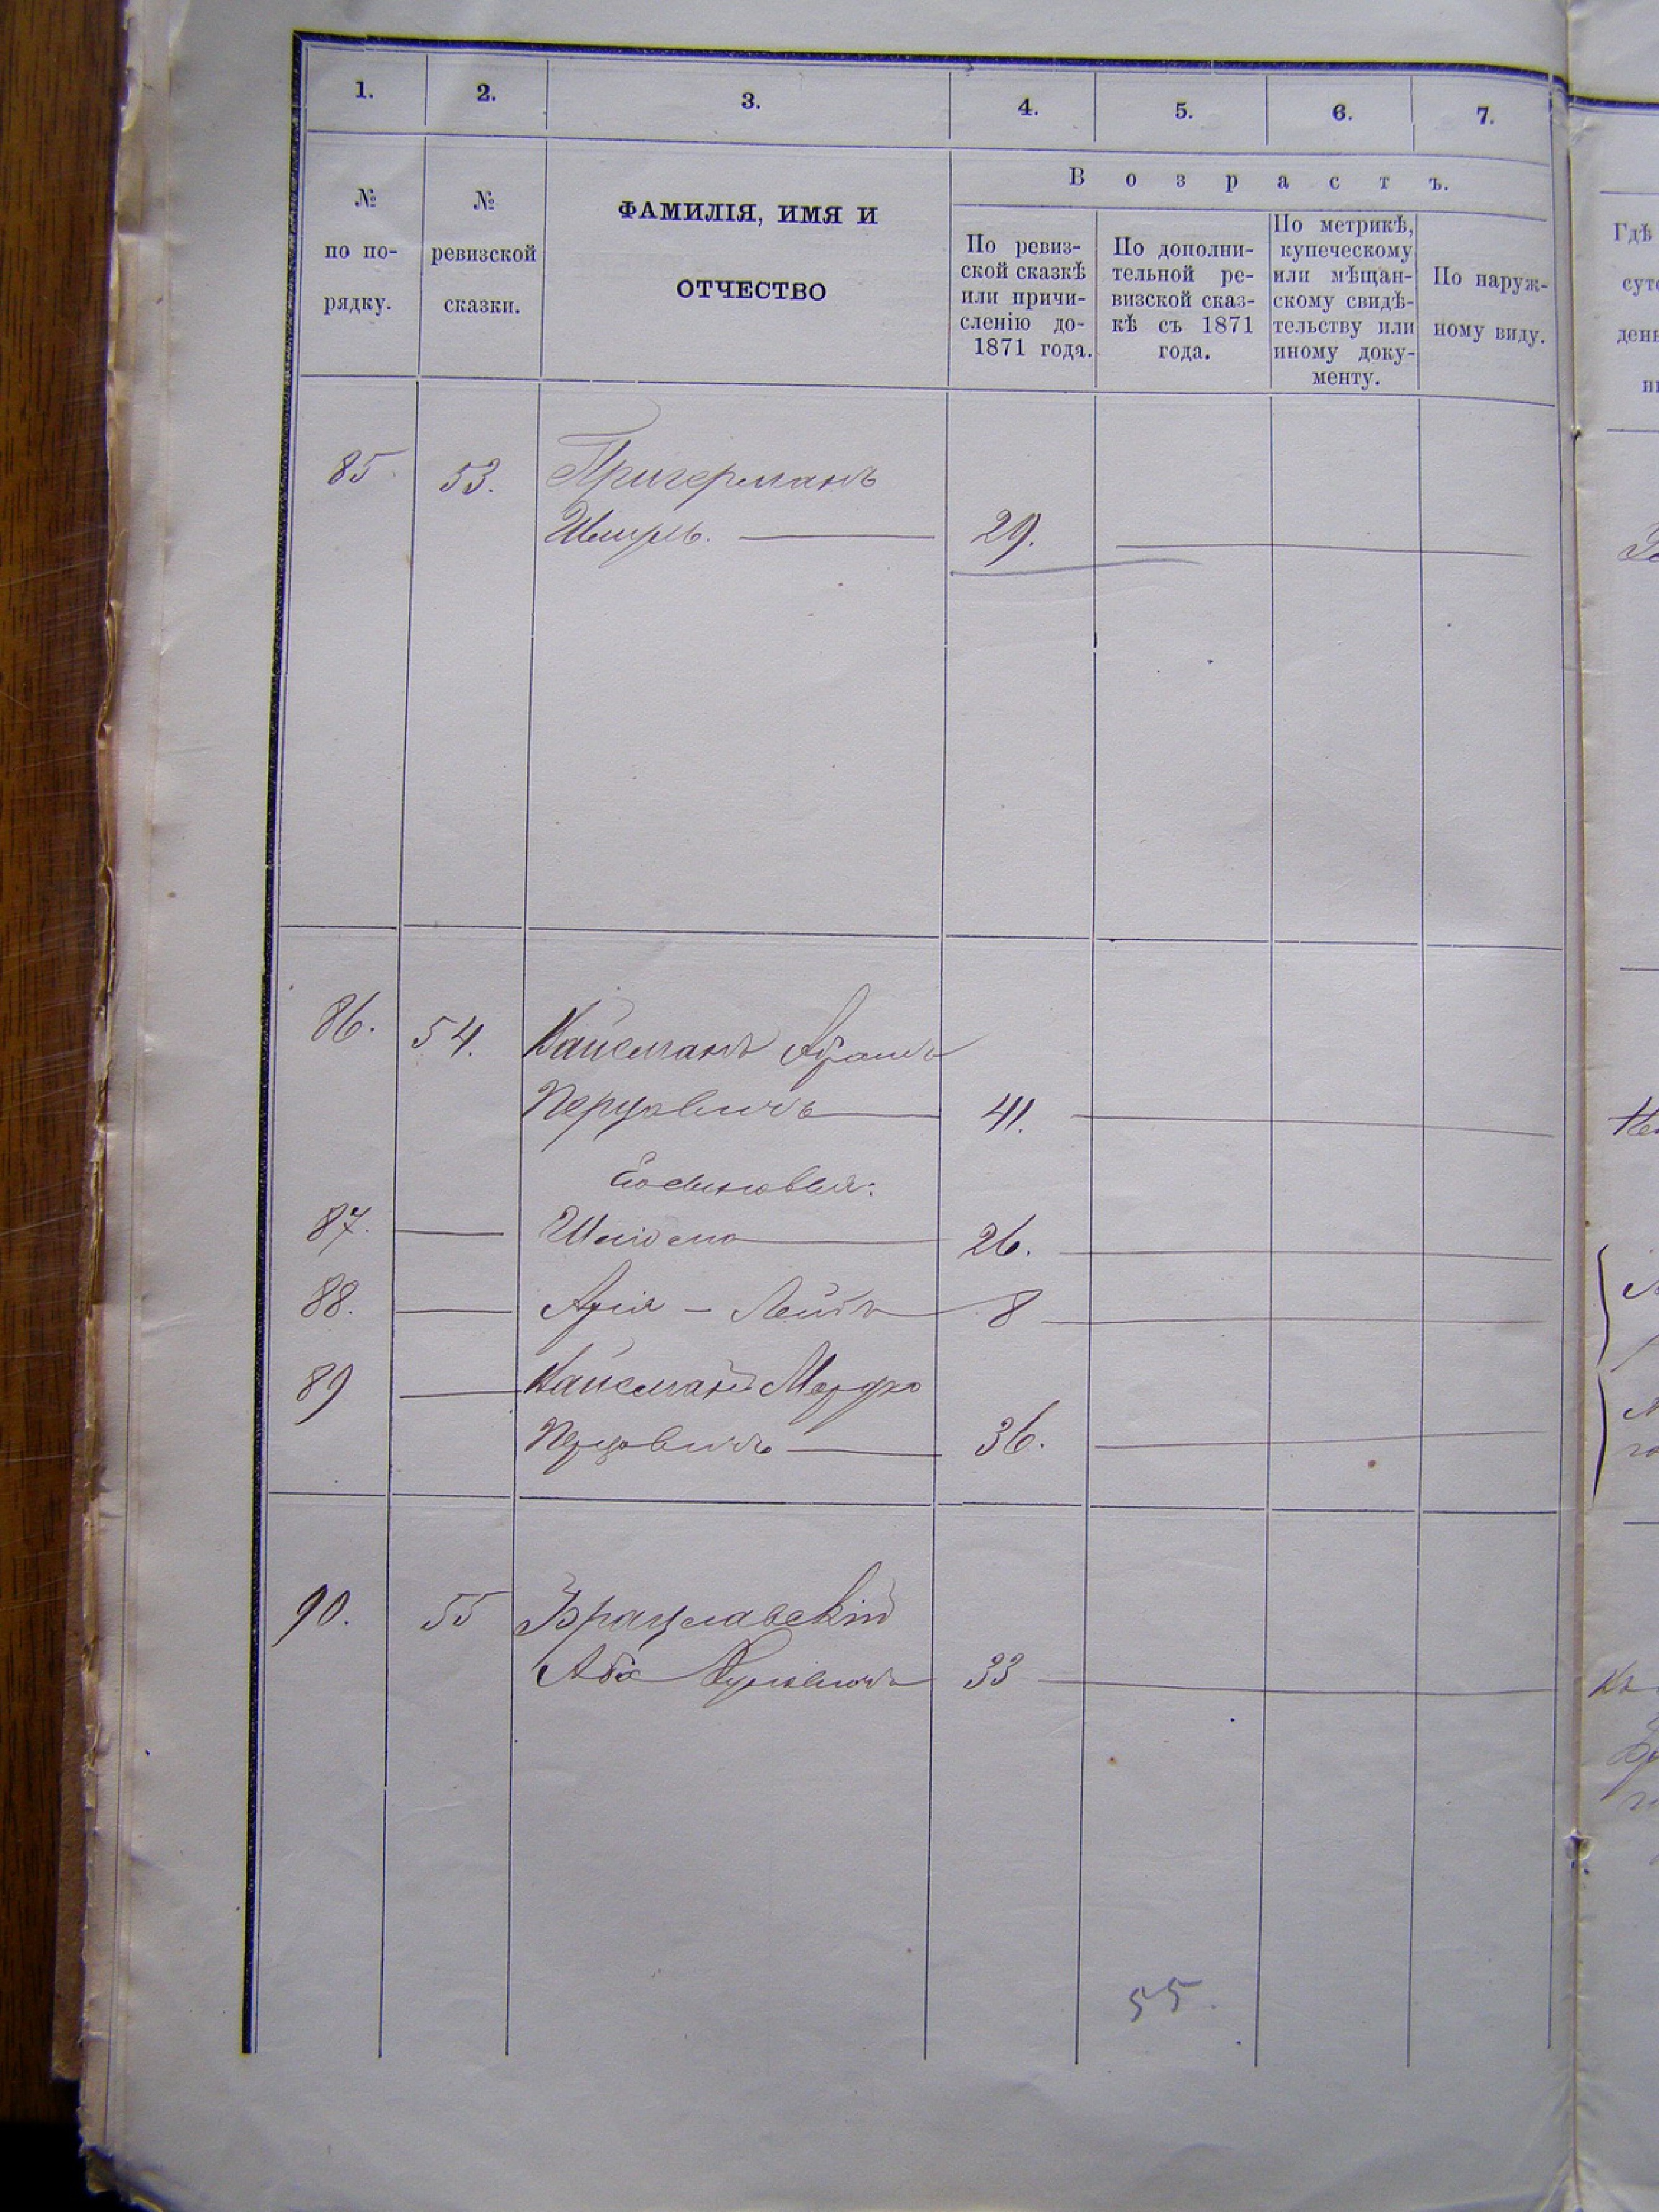 1. 2. 3. 4. 5. 6. 7.
№ по по-рядку.
№ ревизской сказки.
ФАМИЛІЯ, ИМЯ И
ОТЧЕСТВО
В о з р а с т ъ.
По ревиз-
ской сказкѣ
или причи-
сленію до-
1871 года.
По дополни-
тельной ре-
визской сказ-
кѣ съ 1871
года.
По метрикѣ,
купеческому
или мѣщан-
скому свидѣ-
тельству или
иному доку-
менту.
По наруж-
ному виду.
Гдѣ
85 53. Пригерманъ
Шмуль. 29.
86. 54. Кайсманъ Абрамъ
Перцовичъ 41.
Сыновья:
87. 26.
88. Арія - Лейбъ 8
89 Кайсманъ Мордко
Перцовичъ 36.
90. 55 Брацлавскій
Аба 33
55.